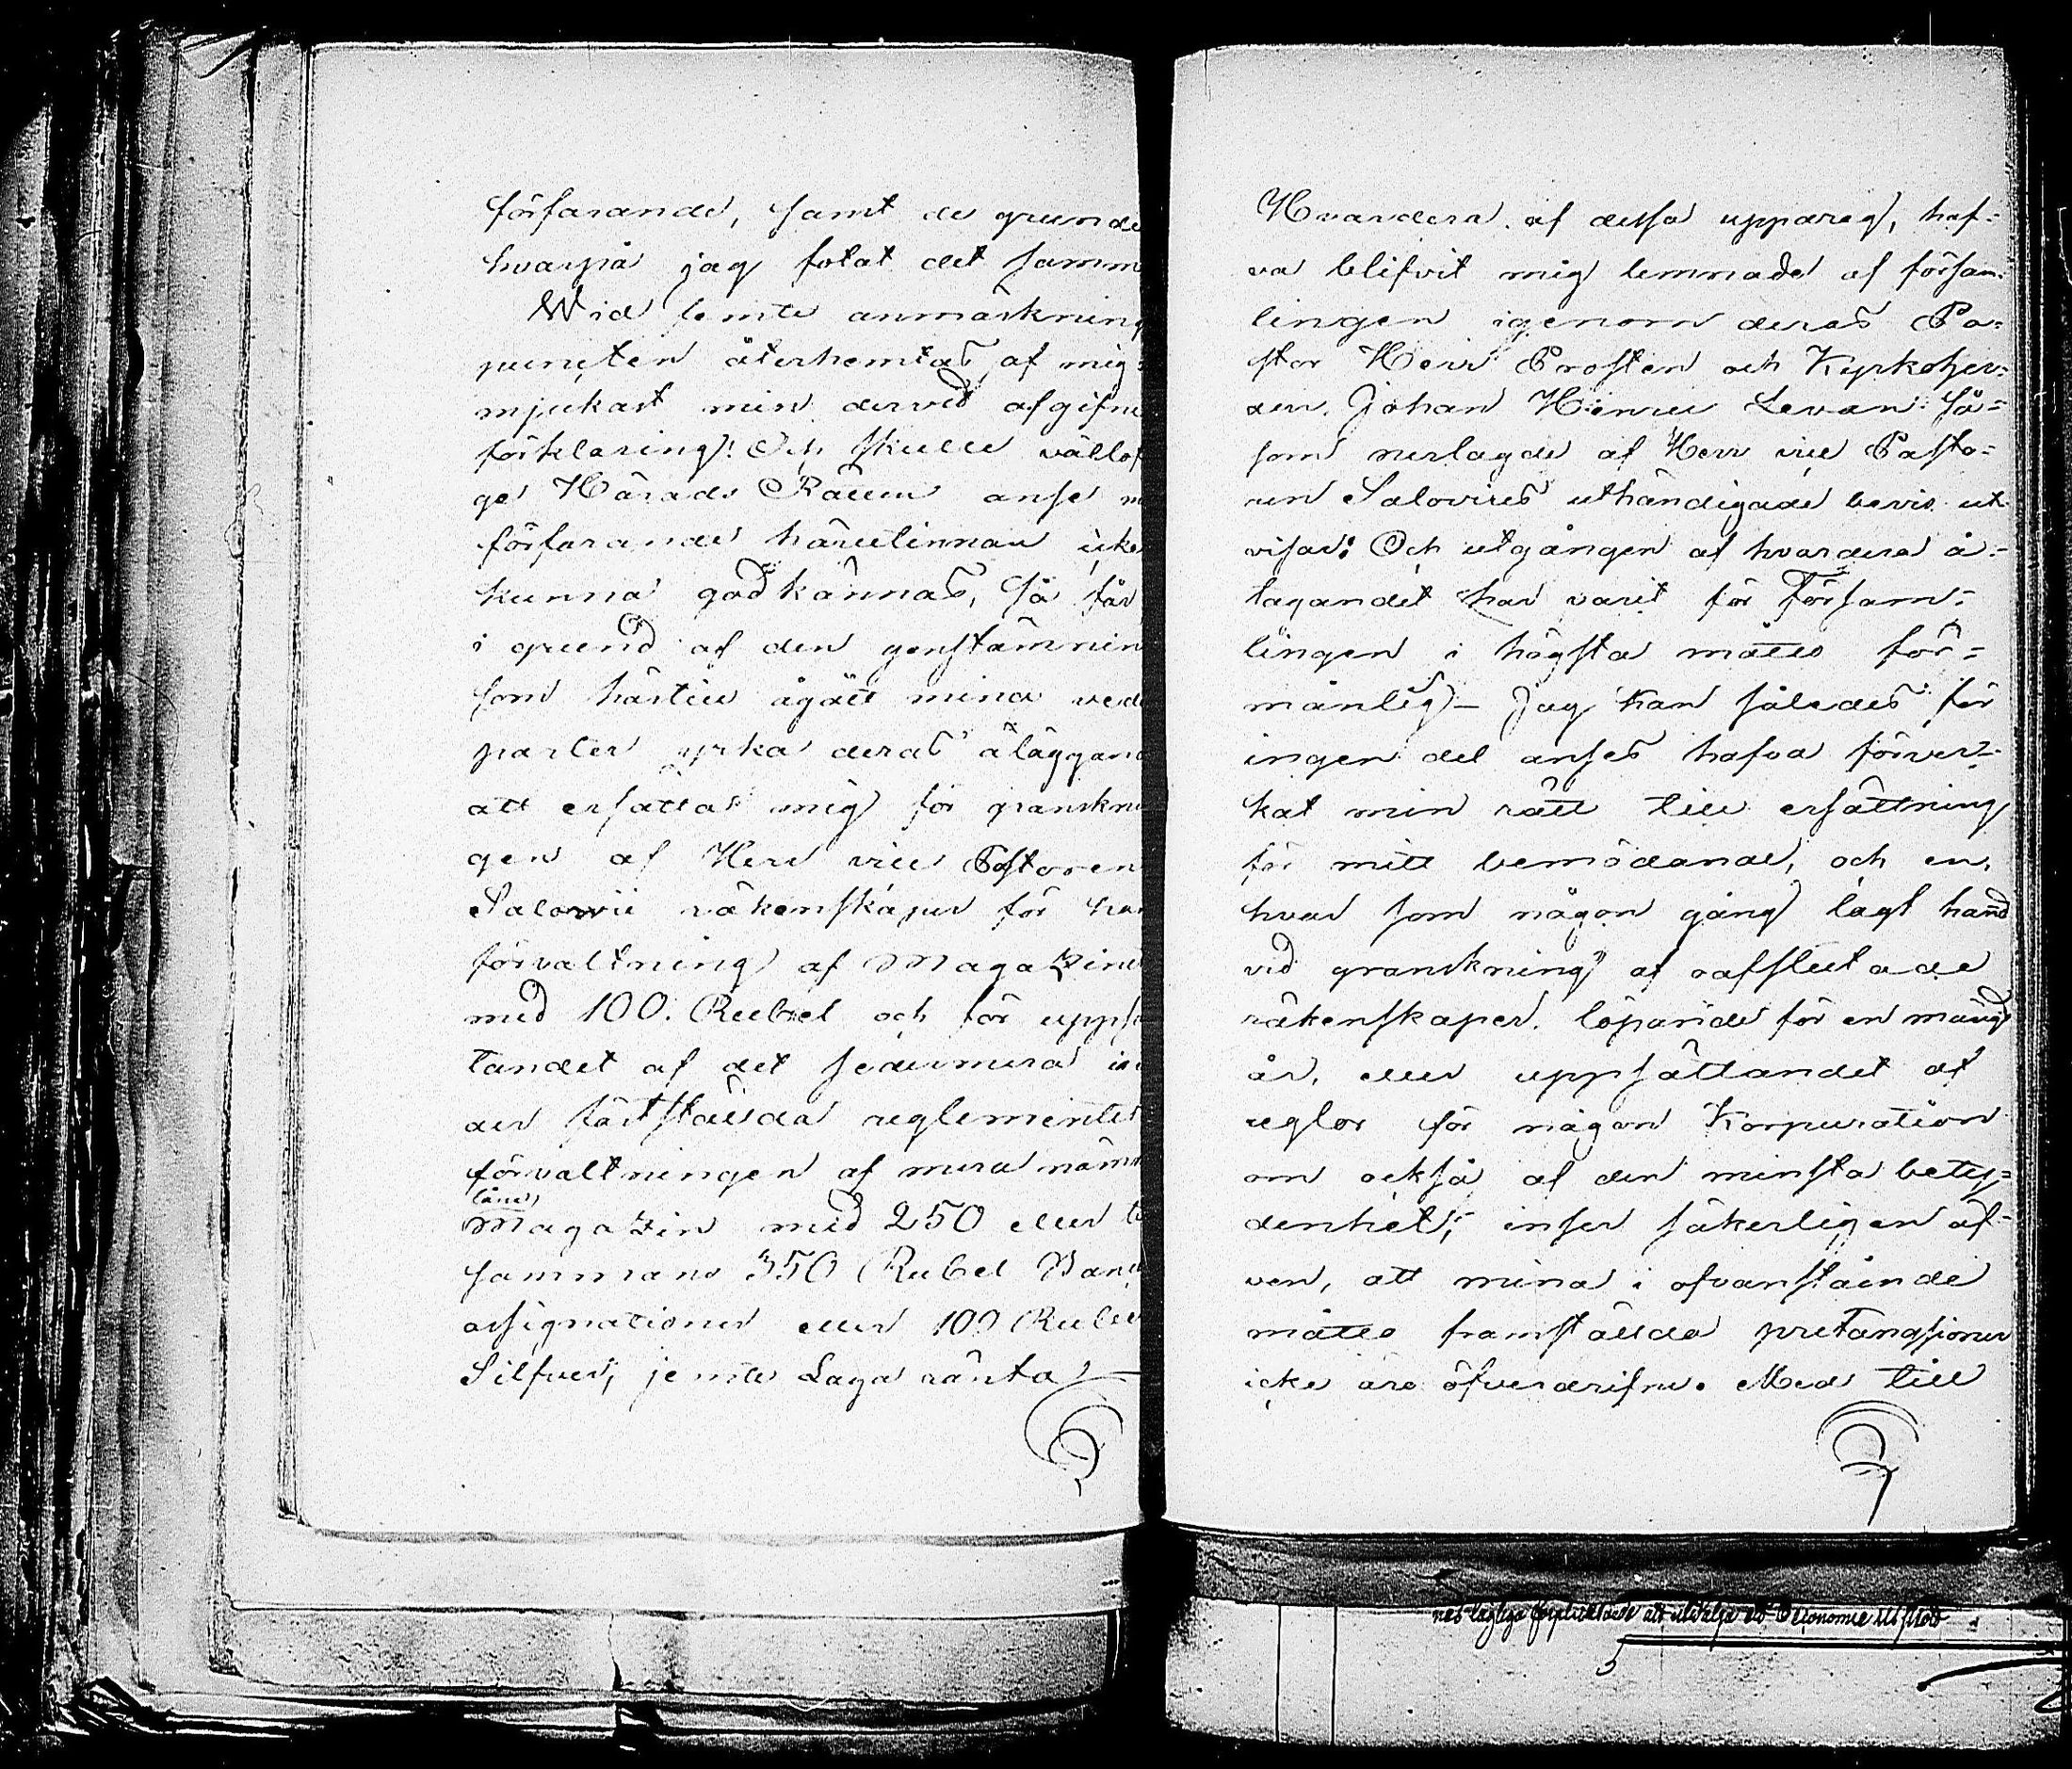 förfarande, samt de grunde
hvarpå jag fotat det samm
Wid femte anmärkning
puncten återhemtas af mig
mjukast min dervid afgifne
förklaring! Och skulle vällof
ge Härads Rätten anse m
förfarande härutinnan icke
kunna godkännas, så får
i grund af den genstämnin
som härtill ägätt mina ved
parter yrka deras åläggand
att ersätta mig för granskni
gen af Herr vice Pastoren
Salovii räkenskaper för han
förvaltning af Magazinet
med 100. Rubel och för uppsä
tandet af det sedermera in
der fastställda reglementet
förvaltningen af mera nämn
låne
Magazin med 250 eller ti
sammans 350 Rubel Banco
assignationer eller 100 Rubel
Silfver, jemte Laga ränta
Hvardera af dessa uppdrag, haf=
va blifvit mig lemnade af försam=
lingen igenom deras Pa=
stor Herr Prosten och Kyrkoher=
den Johan Henric Levan. Så=
som nerlagde af Herr vice Pasto=
ren Salovius uthändigade bevis ut
visar: Och utgången af hvardera å=
tagandet har varit för Försam=
lingen i högsta måtto för=
månlig - Jag kan således för
ingen del anses hafva förver=
kat min rätt till ersättning
för mitt bemödande, och en
hvar som någon gång lagt hand
vid granskning af oafslutade
räkenskaper löpande för en mängd
år, eller uppsättandet af
reglor för någon Korpuration
om också af den minsta bety=
denhet; inser säkerligen äf=
ven, att mina i ofvanstående
måtto framställda pretangsioner
icke äro öfverdrifne. Med till
nes lagliga förplicktade att utvälja et Oeconomie